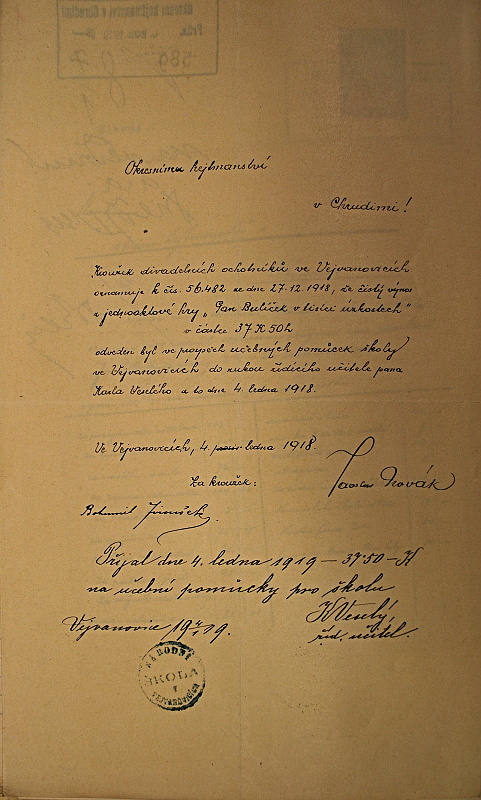 Okresnímu hejtmanství
v Chrudimi!
Kroužek divadelních ochotníků ve Vejvanovicích
oznamuje k čís. 56.482 ze dne 27.12.1918, že čistý výnos
z jednoaktové hry „Pan Bulíček v tisíci úzkostech"
v částce 37 K 50 h
odveden byl ve prospěch učebných pomůcek školy
ve Vejvanovicích do rukou řídícího učitele pana
Karla Veselého a to dne 4. ledna 1918.
Ve Vejvanovicích, 4. ledna 1918.
Za kroužek:
Jaroslav Novák
Bohumil Jiroušek
Přijal dne 4. ledna 1919 — 37·50 — K
na učební pomůcky pro školu
Vejvanovice 19 4/I 19.
KVeselý,
říd. učitel.
NÁRODNÍ
ŠKOLA
V
VEJVANOVICÍCH